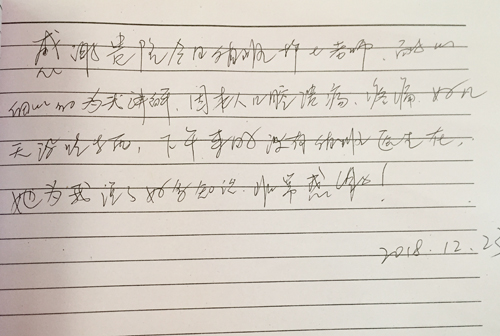 感谢贵院今日值班护士老师,耐心
细心的为我讲解,因本人口腔溃疡,疼痛,好几
天没吃东西,下午来时没有值班医生在,
她为我讲了好多知识.非常感谢!
2018.12.25